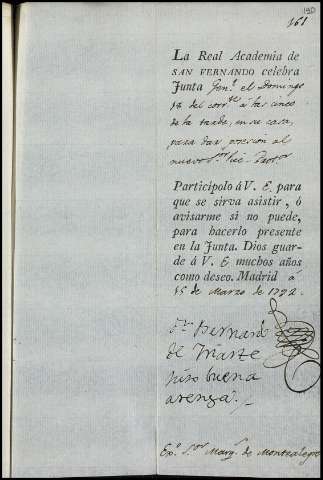 190
161
La Real Academia de
SAN FERNANDO celebra
Junta Gen.l el Domingo
18 del corr.te á las cinco
de la tarde, en su casa,
para dar posesion al
nuevo S.or Vice-Protor
Participolo á V. E. para
que se sirva asistir, ó
avisarme si no puede,
para hacerlo presente
en la Junta. Dios guar-
de á V. E. muchos años
como deseo. Madrid á
15 de Marzo de 1792.
Dn. Bernardo
de Iriarte
hizo buena
arenga.
Ex.o S.or Marq.s de Montealegre